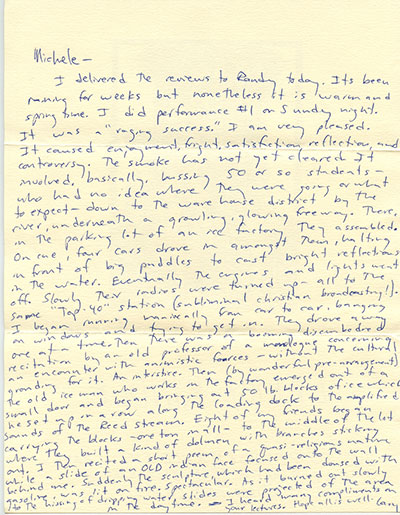 Michele —
I delivered the reviews to Randy today. Its been
raining for weeks but nonetheless it is warm and
spring time. I did performance #1 on Sunday night.
It was a "raging success." I am very pleased.
It caused enjoyment, fright, satisfaction, reflection, and
controversy. The smoke has not yet cleared. It
involved, basically, bussing 50 or so students —
who had no idea where they were going or what
to expect — down to the warehouse district by the
river, underneath a growling, glowing freeway. There,
in the parking lot of an ice factory they assembled.
On cue, four cars drove in amongst them, halting
in front of big puddles to cast bright reflections
in the water. Eventually the engines and lights went
off. Slowly their radios were turned up — all to the
same "Top-40" station (subliminal christian broadcasting!).
I began running maniacally from car to car, banging
on windows and trying to get in. The drove away
one at a time. Then there was a booming disembodied
recitation by an old professor of a monologue concerning
an encounter with artistic forces — without the cultural
grounding for it. An interstice. Then (by wonderful pre-arrangement)
the old ice man who works in the factory emerged out of a
small door and began bringing out 50 lb blocks of ice which
he set in a row along the loading dock to the amplified
sounds of the Reed stream. Eight of my friends began
carrying the blocks — one ton in all — to the middle of the lot
where they built a kind of dolmen with branches sticking
out. I then recited a short poem of a quasi-religious nature
while a slide of an OLD indian face focused onto the wall
behind me. Suddenly the sculpture which had been doused with
gasoline, was lit on fire. Spectacular. As it burned out slowly
to the hissing & dripping water, slides were projected of the area
in the daytime. — I heard many compliments on
your lectures. Hope all is well.